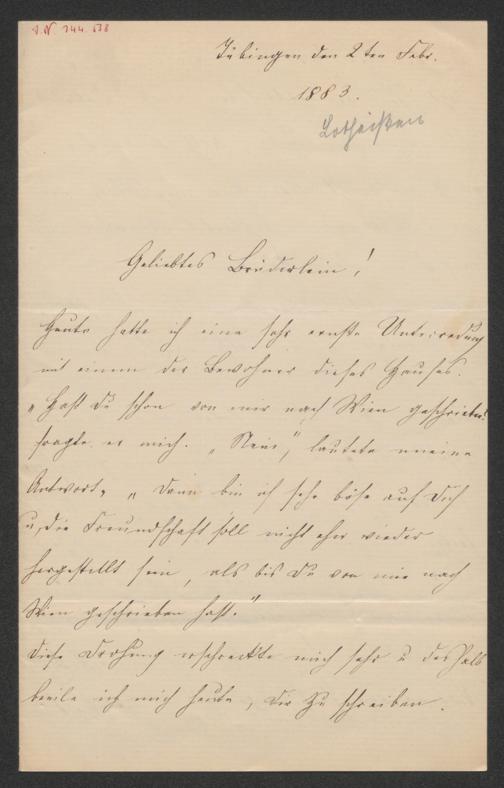 I.N. 144.538
Tübingen den 2ten Febr.
1883.
Lotheißen
Geliebtes Brüderlein!
Heute hatte ich eine sehr ernste Unterredung
mit einem der Bewohner dieses Hauses.
„Hast Du schon von mir nach Wien geschrieben"
fragte er mich. „Nein", lautete meine
Antwort, „Dann bin ich sehr böse auf Dich
u. die Freundschaft soll nicht eher wieder
hergestellt sein, als bis Du von mir nach
Wien geschrieben hast."
Diese Drohung erschreckte mich sehr u deshalb
beeile ich mich heute, Dir zu schreiben.